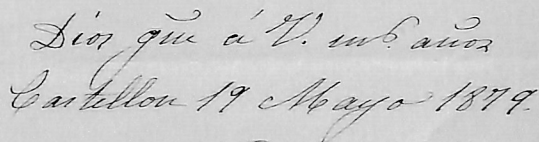 Dios gue á V. ms. años
Castellon 19 Mayo 1879.